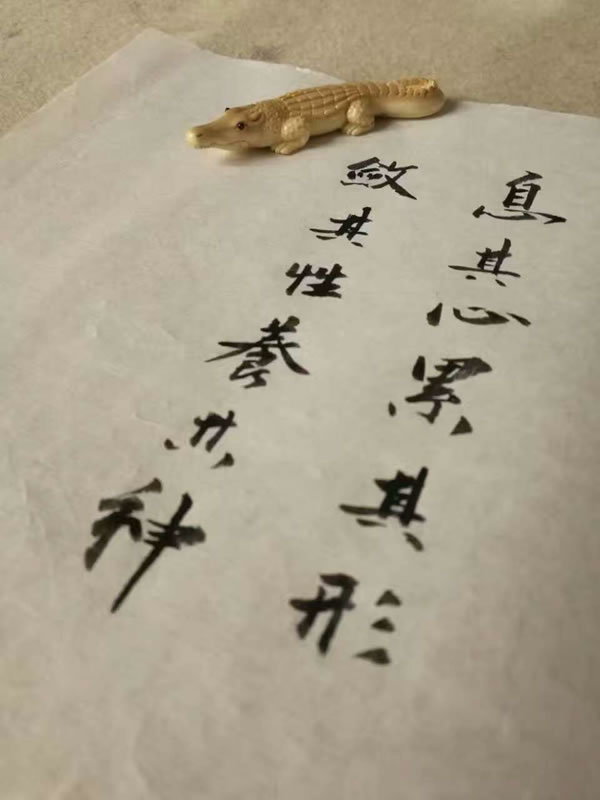 息其心累其形
斂其性養其神